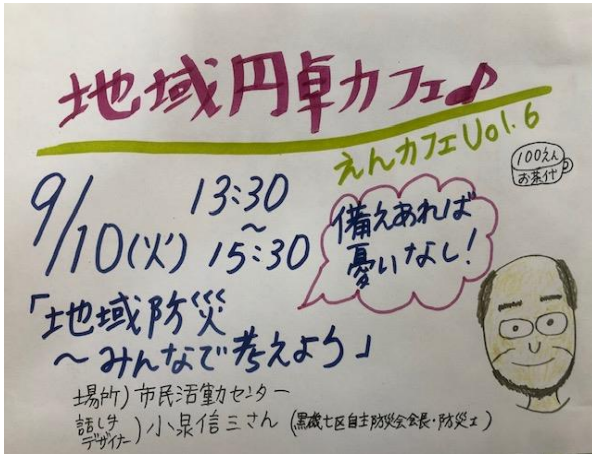 地域円卓カフェ♪
えんカフェVol.6
100えん
お茶代
9/10(火) 13:30
~
15:30
備えあれば
憂いなし!
「地域防災
~みんなで考えよう」
場所)市民活動センター
話し手
デザイナー)小泉信三さん(黒磯七区自主防災会会長・防災士)